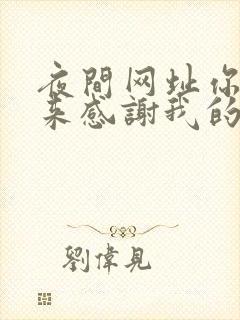 夜間网址你
来感謝我的
劉偉見